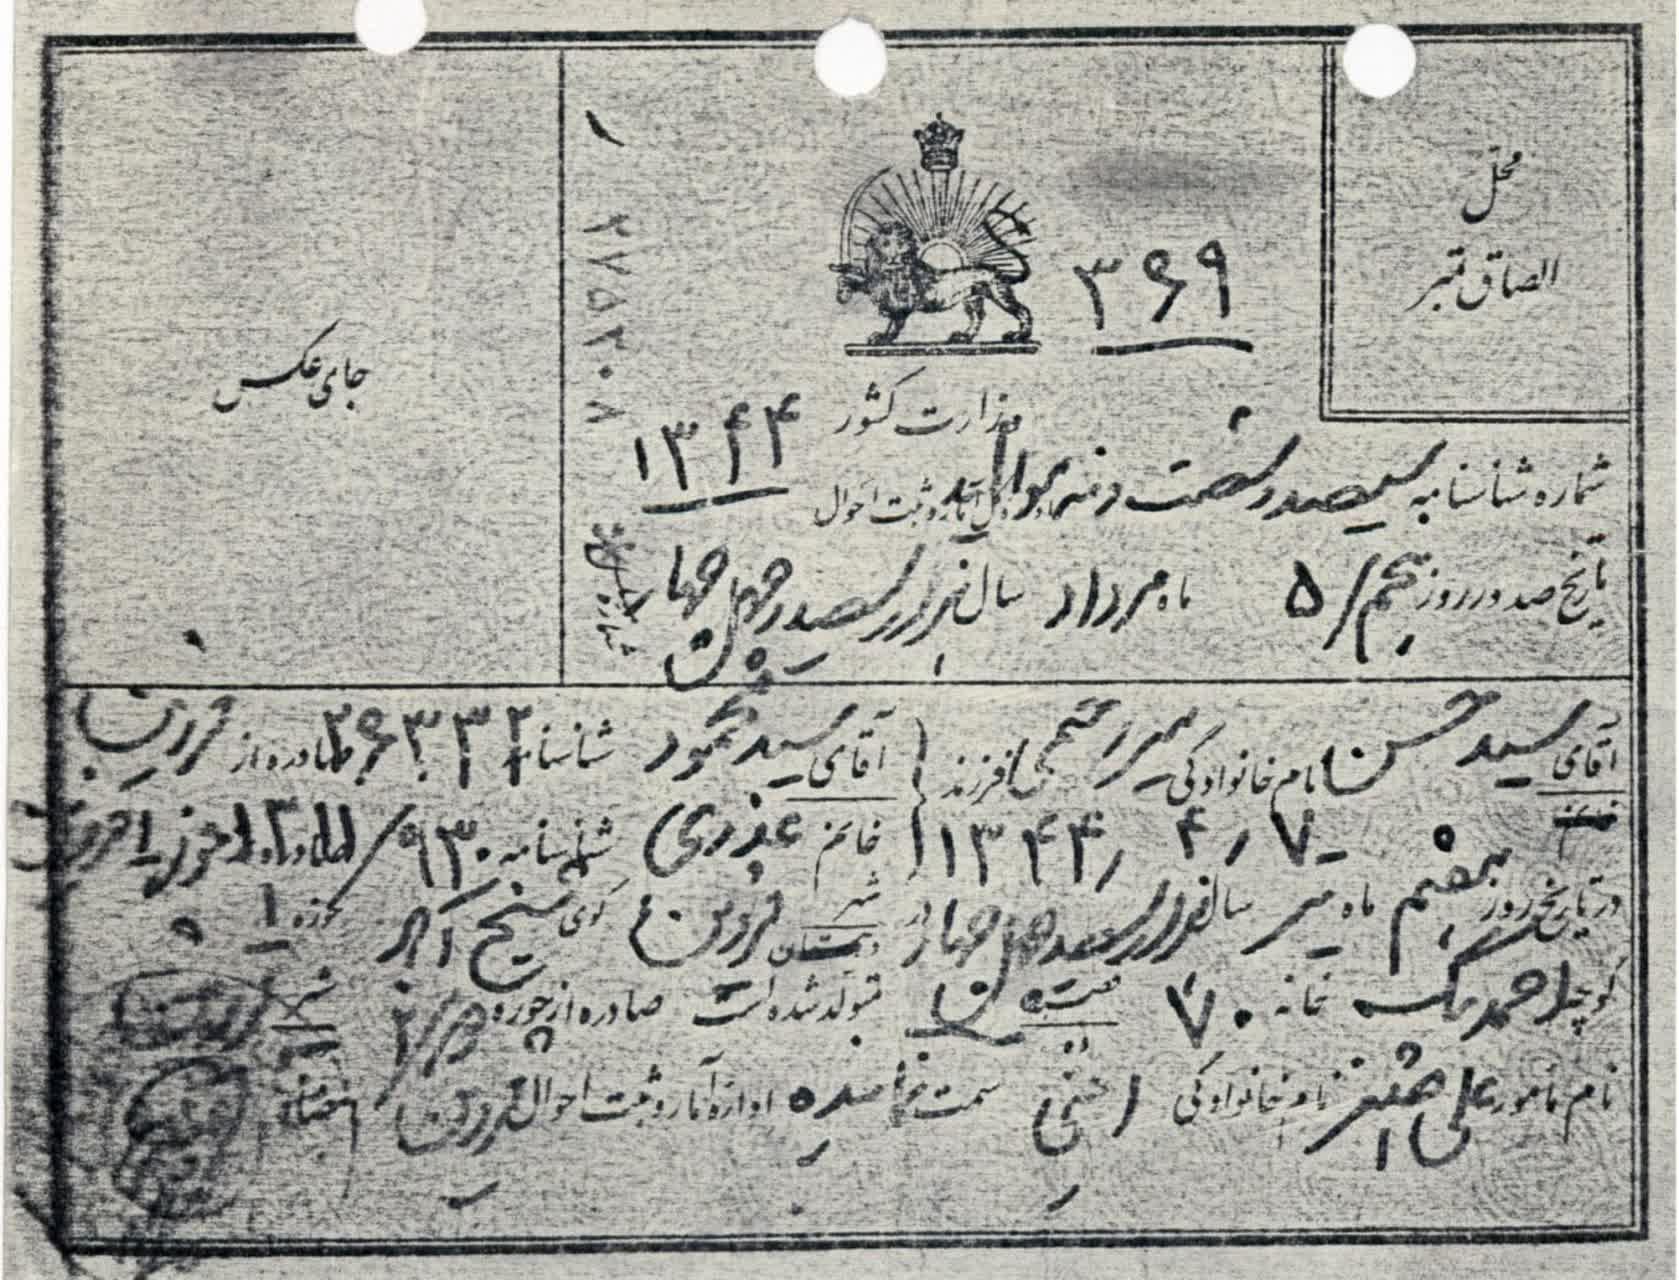 محل
الصاق تمبر
۳۶۹
جای عکس
۲۷۵۲۰۸
وزارت کشور
۱۳۴۴
شماره شناسنامه سیصد و شصت و نه اداره کل آمار و ثبت احوال
تاریخ صدور روز پنجم / ۵ ماه مرداد سال هزار و سیصد و چهل و چهار
آقای سید حسن نام خانوادگی فرزند آقای سید محمود شناسنامه ۲۶۳۳۲ صادره از قزوین
خانم ۷ / ۴ / ۱۳۴۴ خانم عذری شناسنامه ۹۳۰ / صادره از حوزه ۱ قزوین
در تاریخ روز هفتم ماه تیر سال هزار و سیصد و چهل و چهار در شهر دهستان قزوین کوی حوزه ۱
کوچه خانه ۷۰ قصبه متولد شده است صادره از حوزه ۲ شهر
نام مامور علی اصغر نام خانوادگی سمت نماینده اداره آمار و ثبت احوال قزوین امضاء